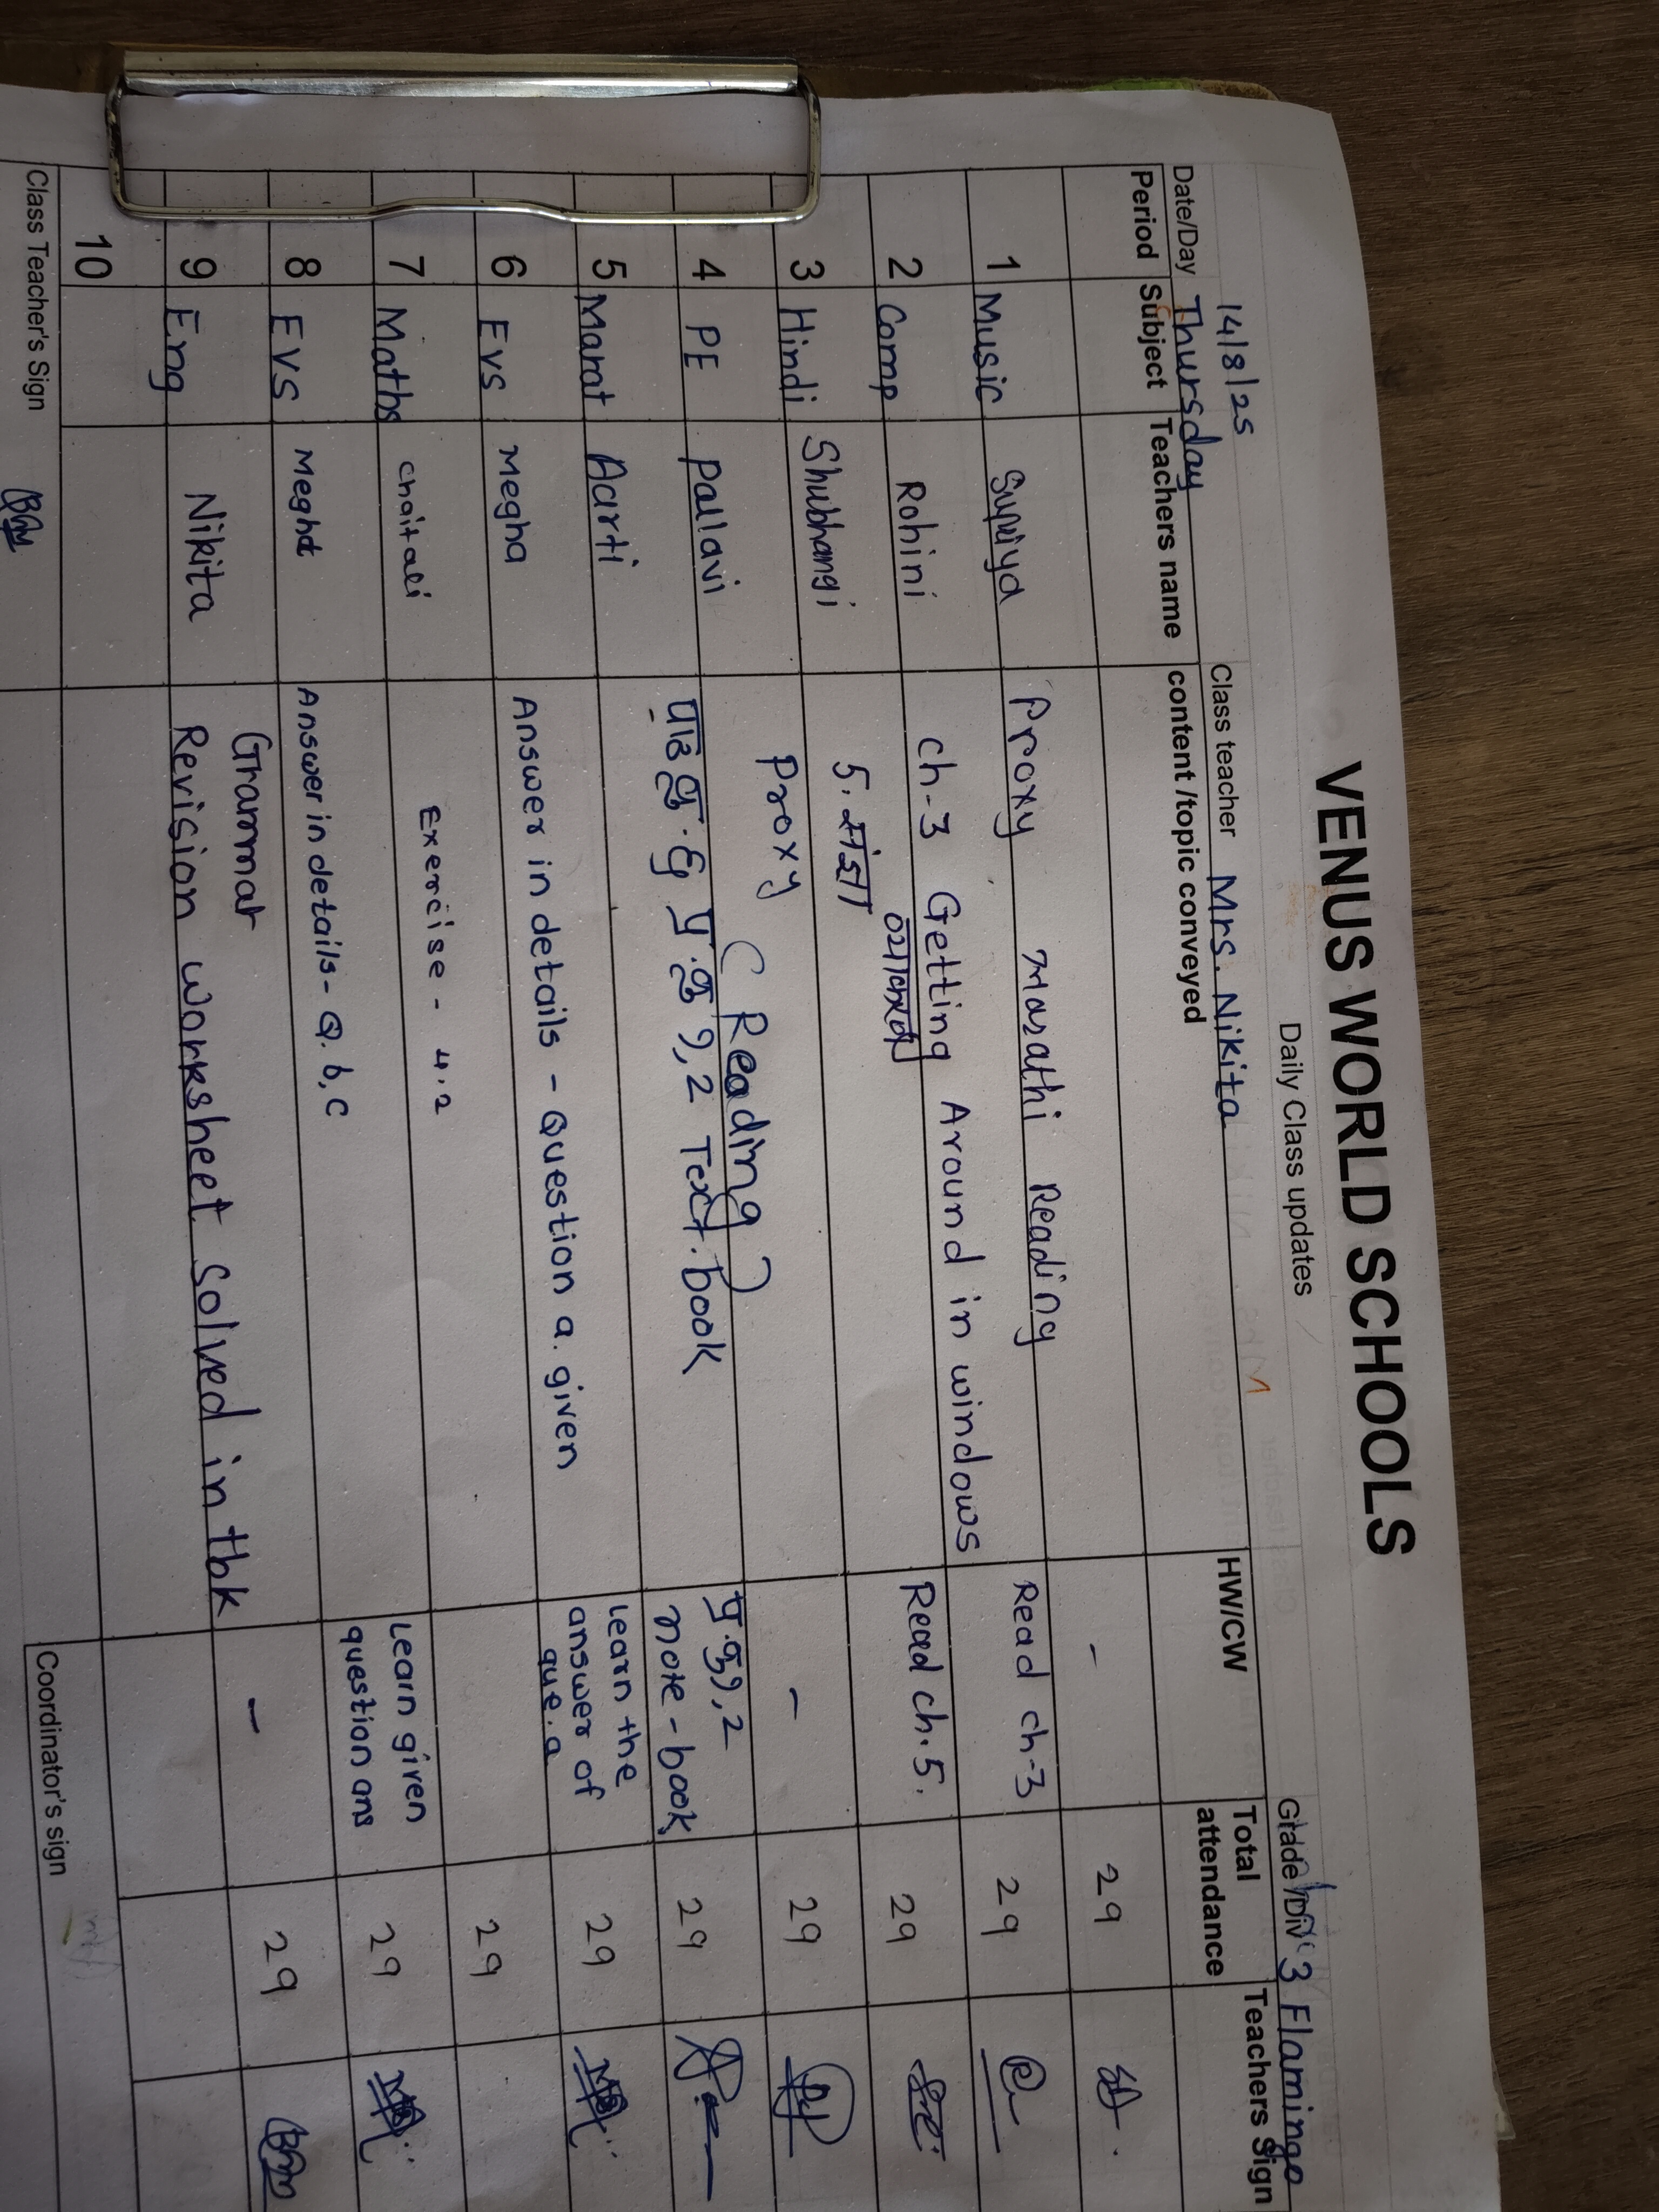 VENUS WORLD SCHOOLS
Daily Class updates
14/8/25
Date/Day Thursday Class teacher Mrs. Nikita Grade/Div 3 Flamingo
Period Subject Teachers name content /topic conveyed HW/CW Total attendance Teachers Sign
1 Music Supriya Proxy Marathi Reading - 29
2 Comp Rohini ch-3 Getting Around in windows Read ch-3 29
3 Hindi Shubhangi 5. संज्ञा व्याकरण Read ch.5. 29
4 PE Pallavi Proxy (Reading) - 29
5 Marat Aarti पाठ क्र. ६ प्र.क्र १,२ Text.book note-book 29
6 EVS Megha Answer in details - Question a. given Learn the answer of que.a 29
7 Maths chaitali Exercise - 4.2 29
8 EVS Megha Answer in details- Q. b,c Learn given question ans 29
9 Eng Nikita Grammar Revision worksheet solved in tbk - 29
10
Class Teacher's Sign Coordinator's sign